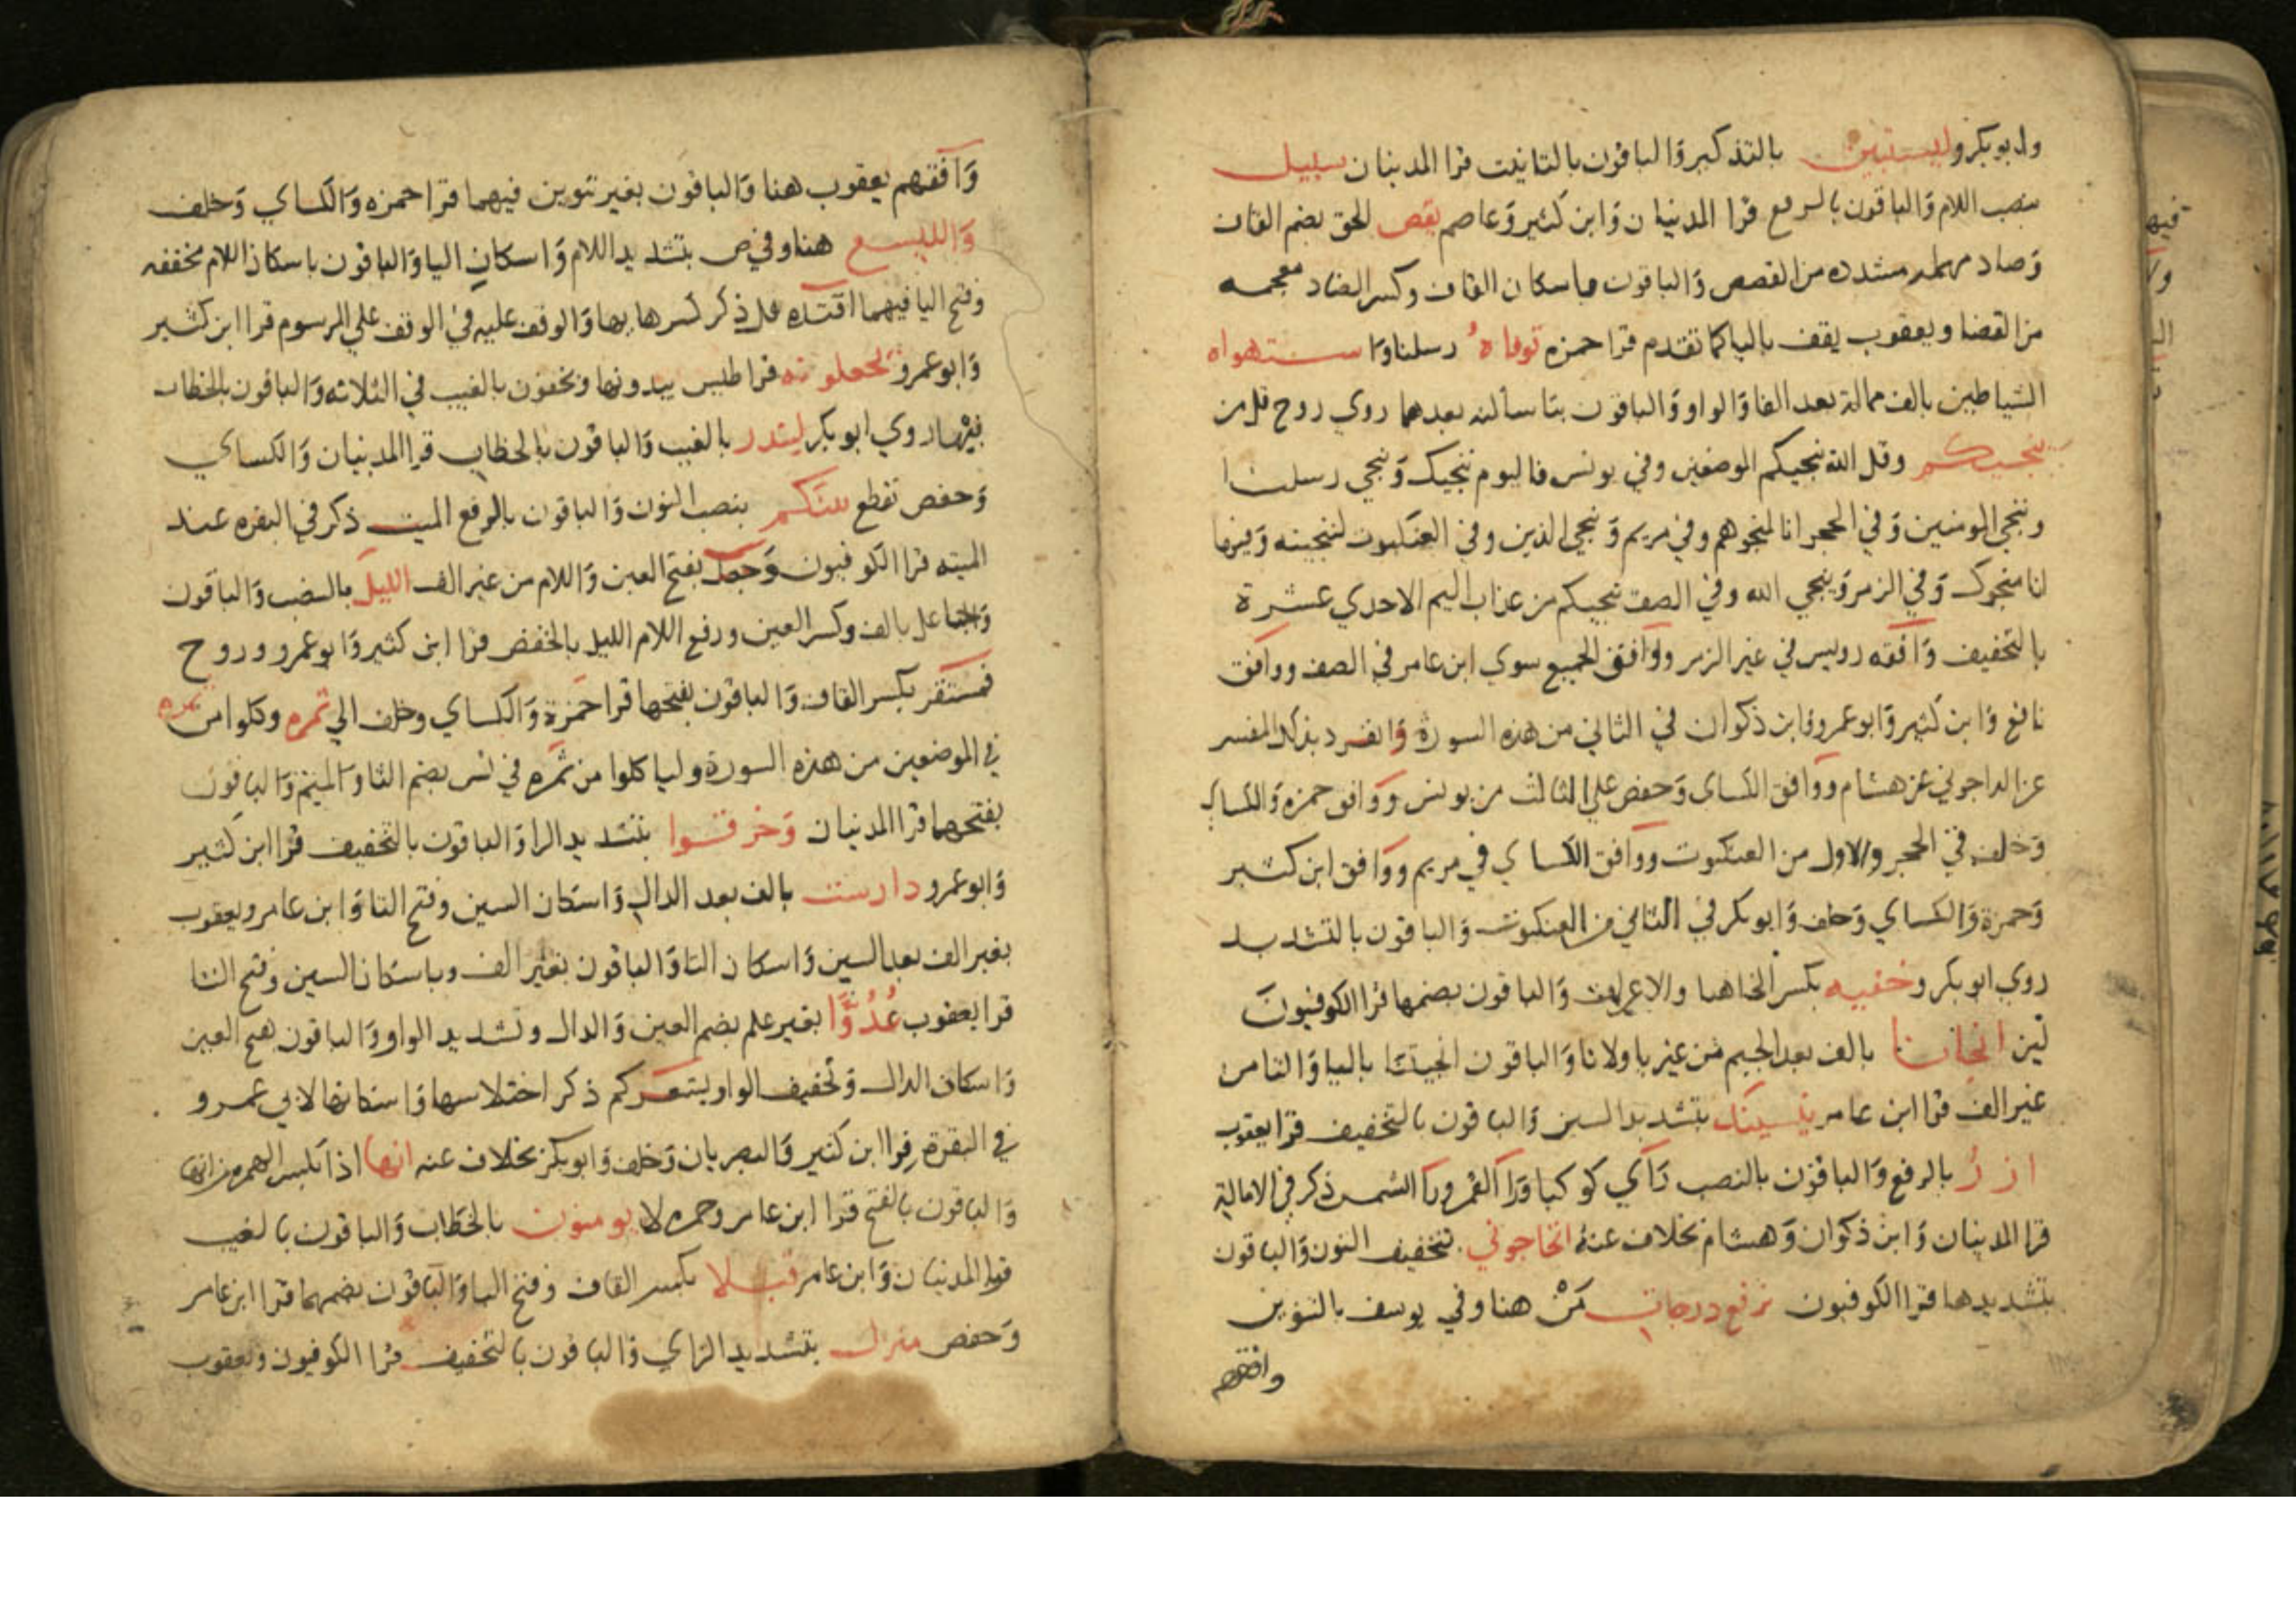 وابوبكر وليستبين بالتذكير والباقون بالتانيث قرا المدنيان سبيل
بنصب اللام والباقون بالرفع قرا المدنيان وابن كثير وعاصم يقص الحق بضم القاف
وصاد مهمله مشدده من القصص والباقون باسكان القاف وكسر الضاد معجمه
من القضا ويعقوب يقف بالياكما تقدم قرا حمزه توفاه رسلنا وا ستهواه
الشياطين بالف ممالة بعد الفا والواو والباقون بتا ساكنه بعدهما روي روح قل من
ينجيكم وقل الله ينجيكم الموضعين وفي يونس فاليوم ننجيك وننجي رسلنا
وننجي المومنين وفي الحجر انا لمنجوهم وفي مريم وننجي الذين وفي العنكبوت لننجينه وفيها
انا منجوك وفي الزمر وينجي الله وفي الصف تنجيكم من عذاب اليم الاحدي عشرة
بالتخفيف وافقه رويس في غير الزمر ووافق الجميع سوي ابن عامر في الصف ووافق
نافع وابن كثير وابو عمرو وابن ذكوان في الثاني من هذه السورة وانفرد بذلك المفسر
عن الداجوني عن هشام ووافق الكساى وحفص علي الثالث من يونس ووافق حمزه والكساي
وخلف في الحجر والاول من العنكبوت ووافق الكساي في مريم ووافق ابن كثير
وحمزة والكساي وخلف وابوبكر في الثاني من العنكبوت والباقون بالتشديد
روي ابوبكر وخفيه بكسر الخا هنا والاعراف والباقون بضمها قرا الكوفيون
لين انجانا بالف بعد الجيم من غير يا ولا تا والباقون انجيتنا باليا والتا من
غير الف قرا ابن عامر ينسينك بتشديد السين والباقون بالتخفيف قرا يعقوب
ازر بالرفع والباقون بالنصب راي كوكبا ورا القمر ورا الشمس ذكر في الامالة
قرا المدنيان وابن ذكوان وهشام بخلاف عنه اتحاجوني بتخفيف النون والباقون
بتشديدها قرا الكوفيون نرفع درجات من هنا وفي يوسف بالتنوين
وافقهم
وافقهم يعقوب هنا والباقون بغير تنوين فيهما قرا حمزه والكساي وخلف
والليسع هنا وفي ص بتشديد اللام واسكان اليا والباقون باسكان اللام مخففه
وفتح اليا فيهما اقتده قد ذكر كسرها بها والوقف عليه في الوقف علي المرسوم قرا ابن كثير
وابو عمرو تجعلونه قراطيس يبدونها ويخفون بالغيب في الثلاثه والباقون بالخطاب
فيها روي ابو بكر لينذر بالغيب والباقون بالخطاب قرا المدنيان والكساي
وحفص تقطع بينكم بنصب النون والباقون بالرفع الميت ذكر في البقره عند
الميته قرا الكوفيون وجعل بفتح العين واللام من غير الف الليل بالنصب والباقون
وجاعل بالف وكسر العين ورفع اللام الليل بالخفض قرا ابن كثير وابو عمرو وروح
فمستقر بكسر القاف والباقون بفتحها قرا حمزة والكساي وخلف الي ثمره وكلوا من ثمره
في الموضعين من هذه السورة ولياكلوا من ثمره في يس بضم الثا والميم والباقون
بفتحهما قرا المدنيان وخرقوا بتشديد الرا والباقون بالتخفيف قرا ابن كثير
وابو عمرو دارست بالف بعد الدال واسكان السين وفتح التا وابن عامر ويعقوب
بغير الف بعد السين واسكان التا والباقون بغير الف وباسكان السين وفتح التا
قرا يعقوب عُدُوًّا بغير علم بضم العين والدال وتشديد الواو والباقون بفتح العين
واسكان الدال وتخفيف الواو يشعركم ذكر اختلاسها واسكانها لابي عمرو
في البقرة قرا ابن كثير والبصريان وخلف وابوبكر بخلاف عنه انها اذا بكسر الهمزه من انها
والباقون بالفتح قرا ابن عامر وحمزه لا يومنون بالخطاب والباقون بالغيب
قرا المدنيان وابن عامر قبلا بكسر القاف وفتح البا والباقون بضمهما قرا ابن عامر
وحفص منزل بتشديد الزاي والباقون بالتخفيف قرا الكوفيون ويعقوب